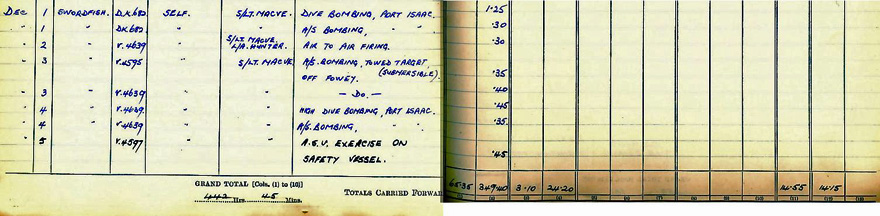 DEC 1 SWORDFISH. DK.682 SELF. S/LT. MACVE. DIVE BOMBING, PORT ISAAC. 1·25
" 1 " DK.682 " " A/S BOMBING, " " ·30
" 2 " V.4639 " S/LT. MACVE. L/A. HUNTER. AIR TO AIR FIRING. ·30
" 3 " V.4595 " S/LT. MACVE A/S. BOMBING, TOWED TARGET (SUBMERSIBLE).
OFF FOWEY. ·35
" 3 " V.4639 " " — DO. — ·40
" 4 " V.4639. " " HIGH DIVE BOMBING, PORT ISAAC. ·45
" 4 " V.4639 " " A/S. BOMBING, " " ·35
" 5 " V.4597 " " A.S.V. EXERCISE ON
SAFETY VESSEL. ·45
GRAND TOTAL [Cols. (1) to (10)]
442 Hrs. 45 Mins.
TOTALS CARRIED FORWAR
65·35 349·40 3·10 24·20 14·55 14·15